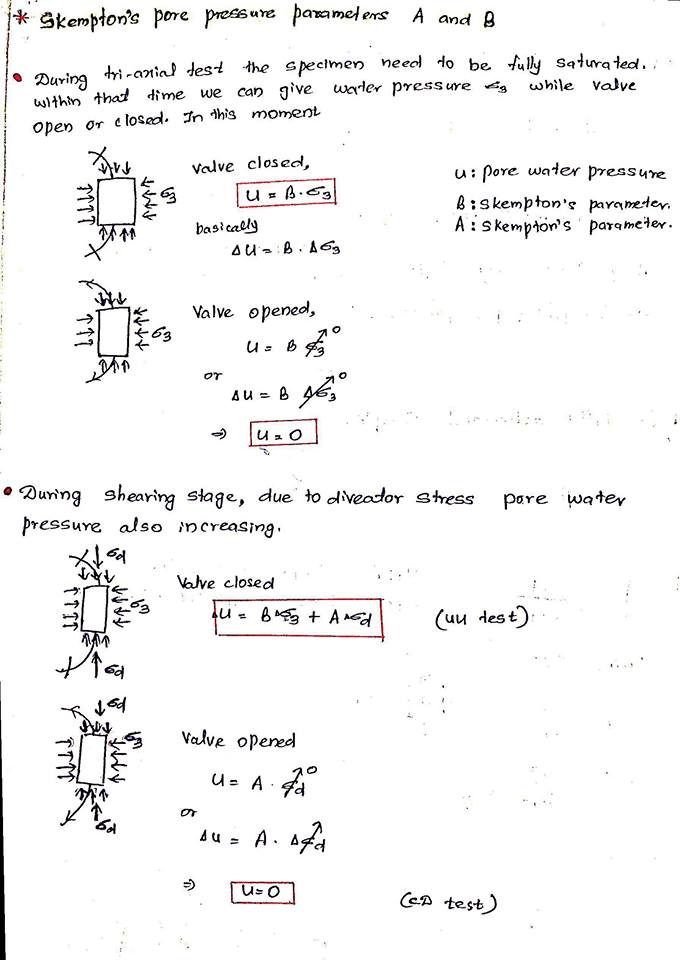 * Skempton's pore pressure parameters A and B
• During tri-axial test the specimen need to be fully saturated.
within that time we can give water pressure σ3 while valve
open or closed. In this moment
σ3
valve closed,
u = B·σ3
basically
Δu = B·Δσ3
u: pore water pressure
B: Skempton's parameter.
A: Skempton's parameter.
σ3
Valve opened,
u = B σ3 0
or
Δu = B Δσ3 0
⇒ u = 0
• During shearing stage, due to diveador stress pore water
pressure also increasing.
σd
σ3
σd
Valve closed
Δu = BΔσ3 + AΔσd
(UU test)
σd
σ3
σd
Valve opened
u = A · σd 0
or
Δu = A · Δσd
⇒ u=0
(CD test)